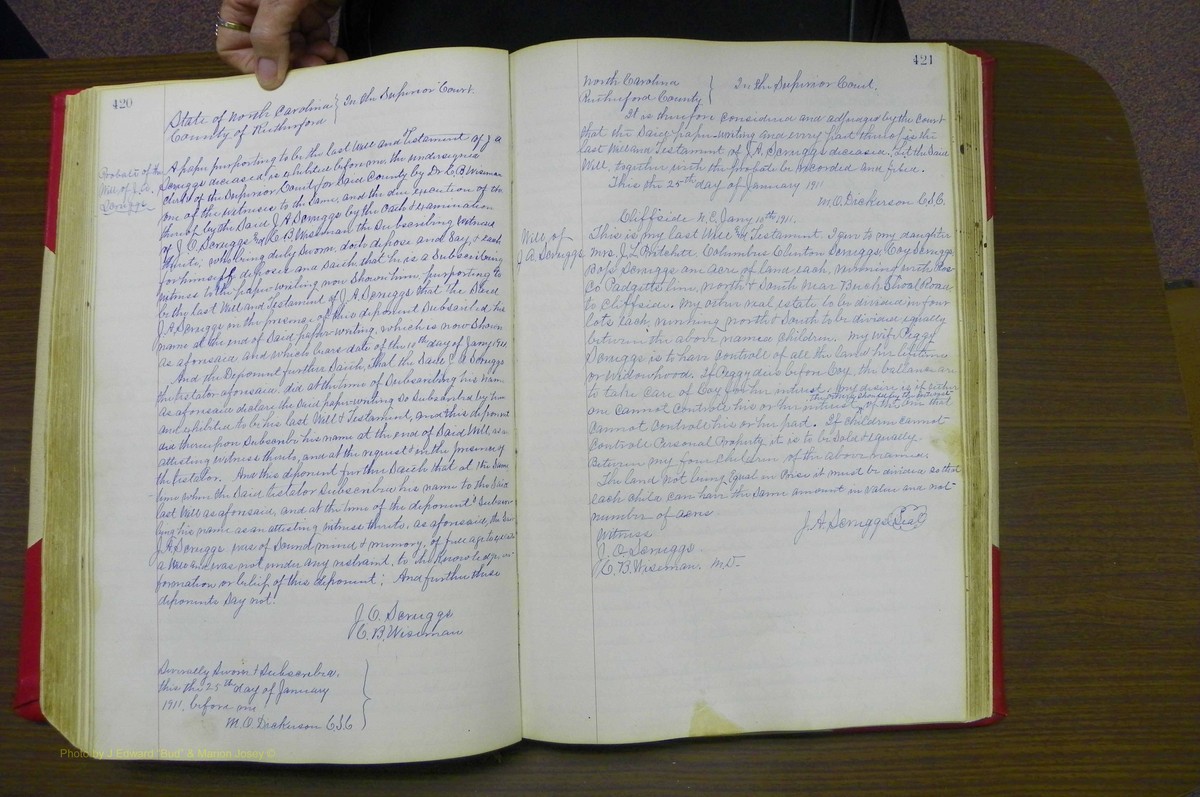 420
State of North Carolina } In the Superior Court
County of Rutherford
Probate of the
Will of J. A.
Scruggs
A paper purporting to be the last Will and Testament of J A
Scruggs deceased is exhibited before me, the undersigned
Clerk of the Superior Court for Said County by Dr C. B. Wiseman
one of the witnesses to the same, and the due execution of the
thereof by the Said J. A. Scruggs by the oath & examination
of J. C. Scruggs & C. B. Wiseman the Subscribing witness
thereto; who being duly sworn, doth depose and Say, & each
for himself deposes and Saith that he is a Subscribing
witness to the paper writing now Shown him, purporting to
be the last Will and Testament of J. A. Scruggs that the Said
J. A. Scruggs in the presence of this deponent Subscribed his
name at the end of Said paper writing, which is now Shown
as aforesaid and which bears date of the 10th day of Jany 1911
And the Deponent further Saith, that the Said J A Scruggs
the testator aforesaid did at the time of Subscribing his name
as aforesaid declare the Said paper writing So Subscribed by him
and exhibited to be his last Will & Testament, and this deponent
did thereupon Subscribe his name at the end of Said Will as an
attesting witness thereto, and at the request & in the presence of
the testator. And this deponent further Saith that at the Same
time when the Said testator Subscribed his name to the Said
last Will as aforesaid, and at the time of the deponent's Subscri-
bing his name as an attesting witness thereto, as aforesaid, the Said
J. A. Scruggs was of Sound mind & memory, of full age to execute
a Will and was not under any restraint, to the knowledge, in-
formation or belief of this deponent; And further these
deponents Say not.
J. C. Scruggs
C. B. Wiseman
Severally Sworn & Subscribed,
this the 25th day of January
1911, before me
M. O. Dickerson C.S.C
421
North Carolina } In the Superior Court.
Rutherford County
It is therefore considered and adjudged by the Court
that the Said paper-writing and every part thereof is the
last Will and Testament of J. A. Scruggs deceased. Let the Said
Will, together with the probate be recorded and filed.
This the 25th day of January 1911
M. O. Dickerson C.S.C.
Cliffside N. C. Jany 10th, 1911.
Will of
J. A. Scruggs
This is my last Will & Testament. I give to my daughter
Mrs. J. L. Pritchett, Columbus Clinton Scruggs, Coy Scruggs
Scruggs an acre of land each, running with
Padgetts line, north & South near Burch Shoal Road
to Cliffside. My other real estate to be divided in four
lots each, running north & South to be divided equally
between the above named Children. My wife Peggy
Scruggs is to have controle of all the land her lifetime
or Widowhood. If Peggy dies before Coy, the ballance are
to take care of Coy for her interest. My desire is if either
one cannot controle his or her interest the others should buy the interest of the one that
cannot controle his or her part. If children cannot
controle Personal Property it is to be Sold & equally
Between my four Children of the above names.
The land not being Equal in Price it must be divided so that
each child can have the Same amount in Value and not
number of acres
J. A. Scruggs Seal
Witness
J. C. Scruggs
C. B. Wiseman. M. D.
Photo by J Edward "Bud" & Marion Josey ©